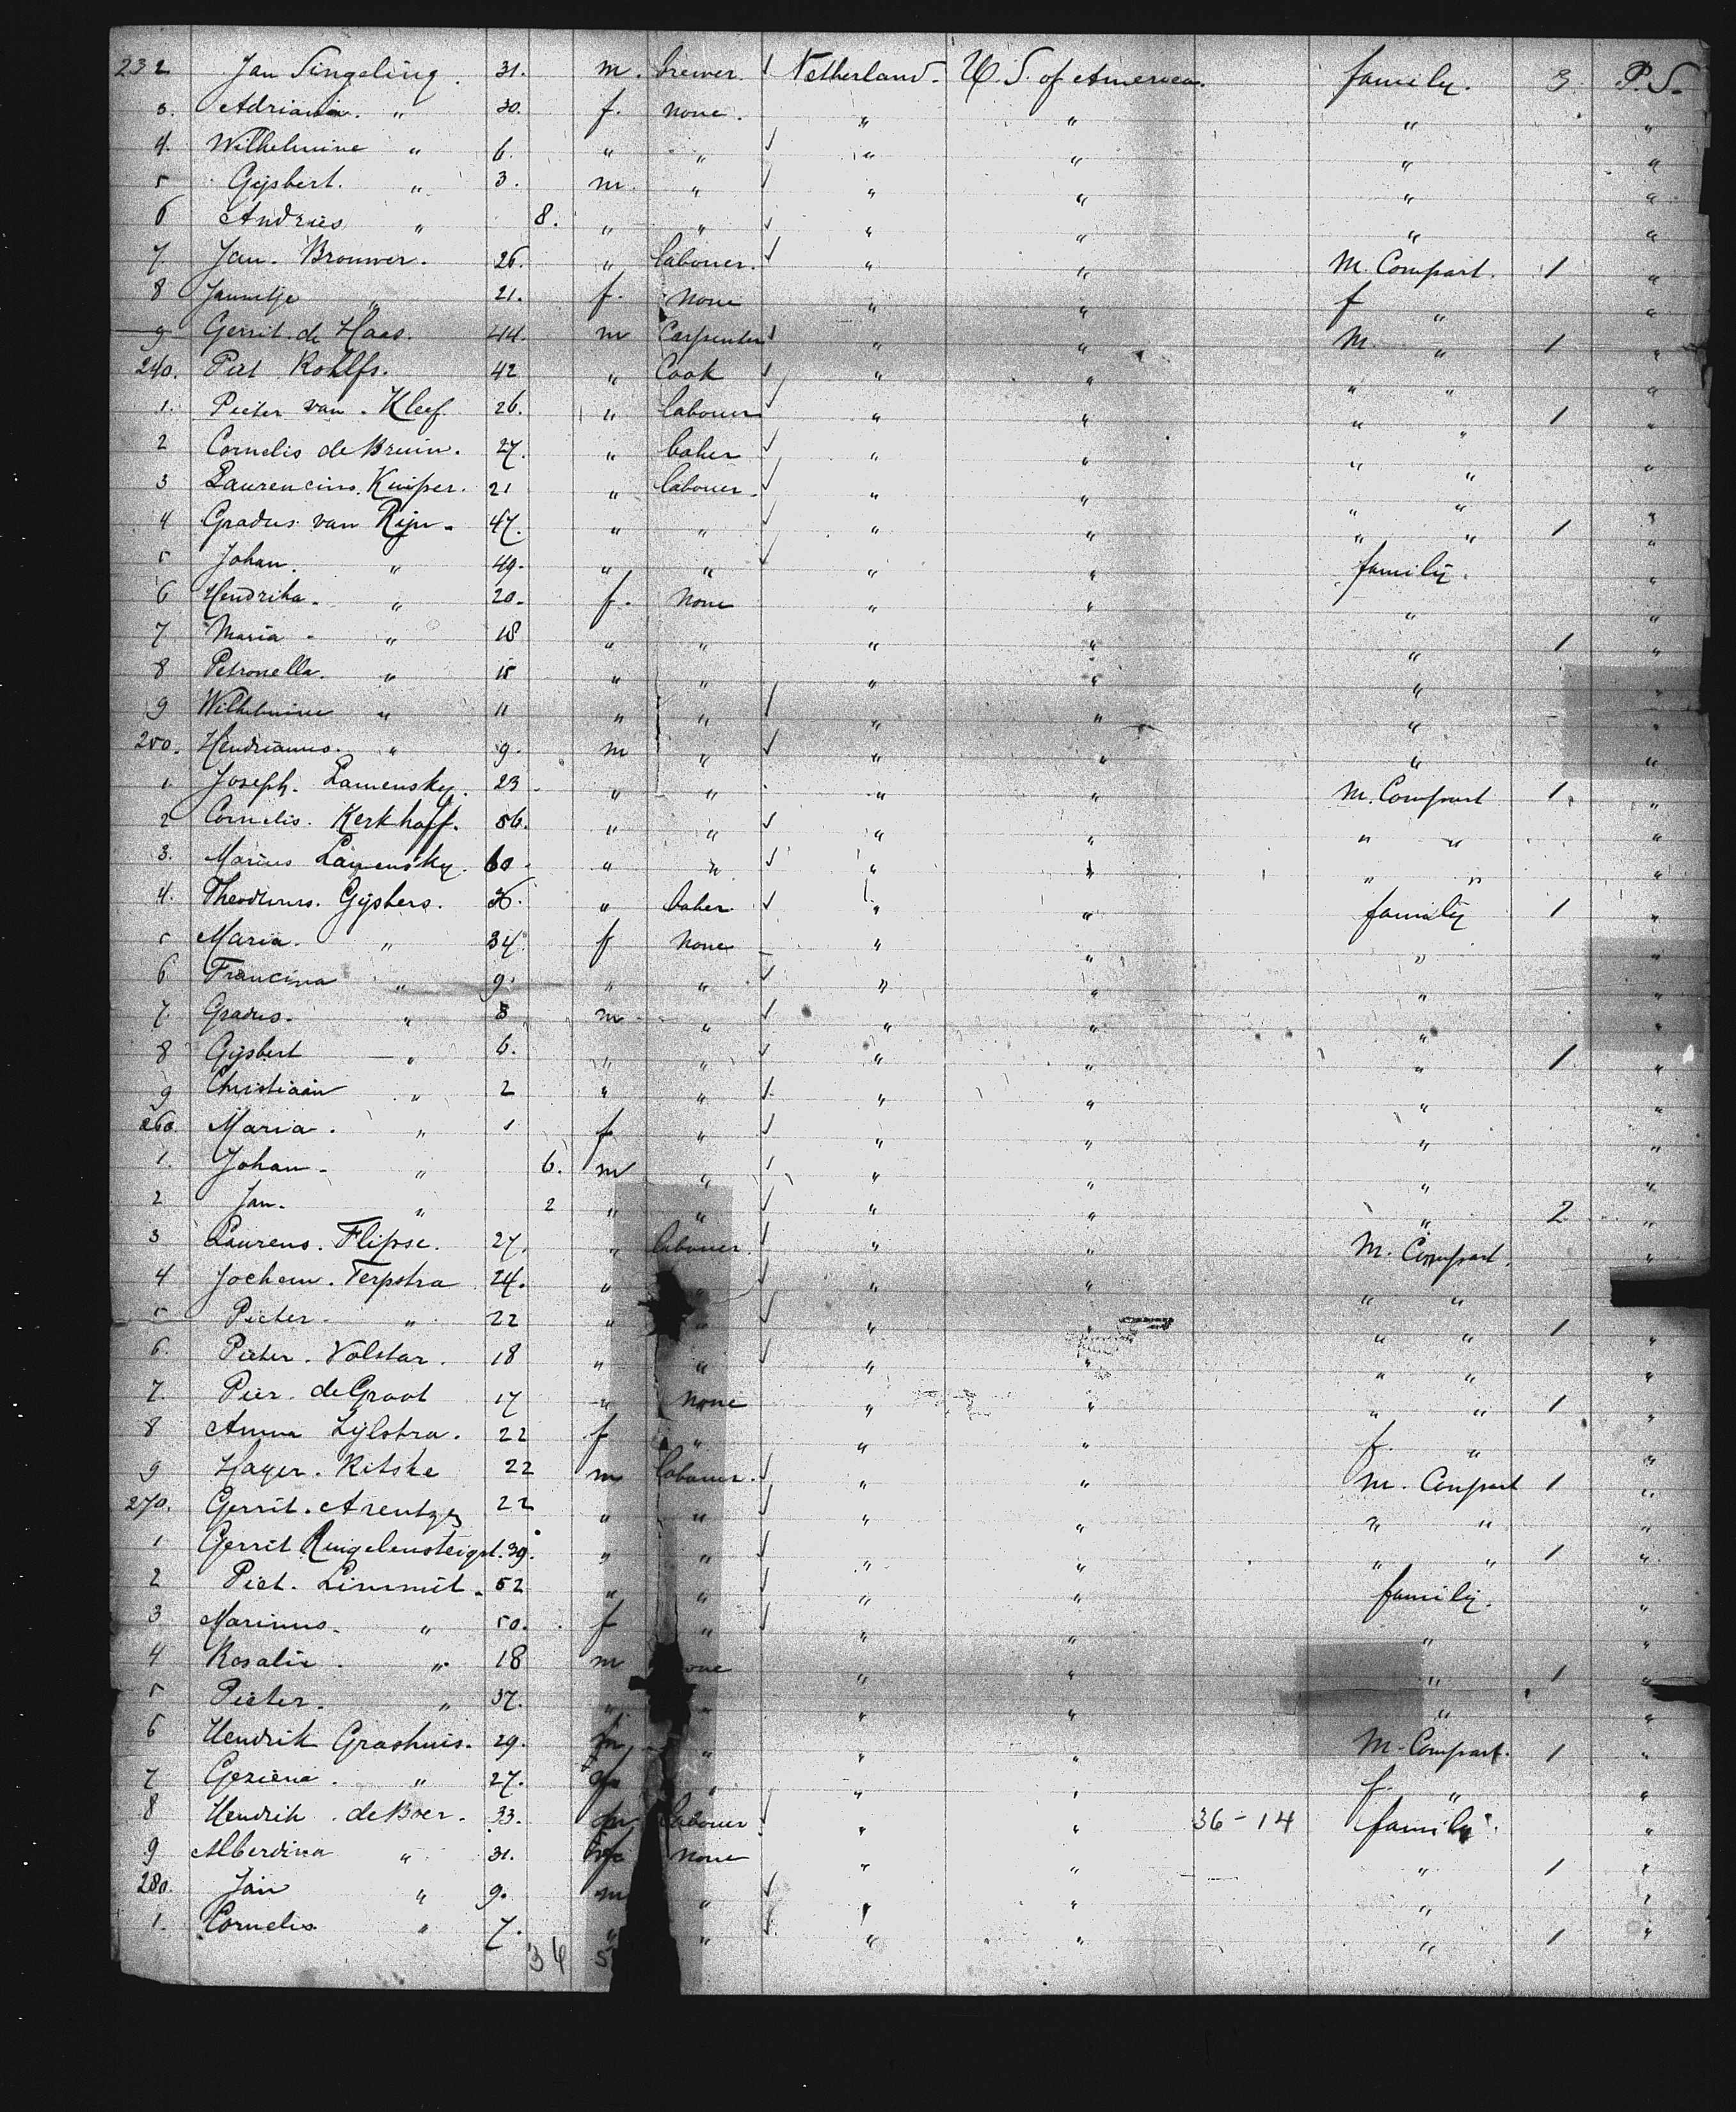 232 Jan Singeling. 31. m. brewer. ✓ Netherland. U. S. of America. family. 3. P. S.
3. Adriana. " 30. f. none. " " " "
4. Wilhelmine " 6. " " ✓ " " " "
5 Gijsbert. " 3. m. " ✓ " " " "
6 Andries " 8. " " ✓ " " " "
7 Jan. Brouwer. 26. " labouer. ✓ " " M. Compart. 1 "
8 Jannetje " 21. f. none " " f " "
9 Gerrit. de Haas. 44. m Carpenter ✓ " " M. " 1 "
240. Piet Rohlfs. 42 " Cook ✓ " " " " "
1. Pieter van. Kleef 26. " labouer ✓ " " " " 1 "
2 Cornelis de Bruin. 27. " baker ✓ " " " " "
3 Laurencius. Kuiper. 21 " labouer. ✓ " " " " "
4 Gradus van Rijn. 47. " " ✓ " " " " 1 "
5 Johan. " 49. " " ✓ " " family. "
6 Hendrika. " 20. f. none " " " "
7 Maria. " 18 " " " " " 1 "
8 Petronella. " 15 " " " " " "
9 Wilhelmine " 11 " " ✓ " " " "
250. Hendrianus. " 9. m " ✓ " " " "
1. Joseph. Lamensky. 23. " " " " M. Compart 1. "
2 Cornelis. Kerkhoff. 56. " " ✓ " " " " "
3. Marius Lamensky. 60. " " ✓ " " " " "
4. Theodurus. Gijsbers. 36. " baker ✓ " " family 1 "
5 Maria. " 34. f none " " " "
6 Francina " 9. " " ✓ " " " "
7. Gradus. " 8 m " ✓ " " " "
8 Gijsbert " 6. " " ✓ " " " 1. "
9 Christiaan " 2 " " ✓ " " " "
260. Maria. " 1 f " ✓ " " " "
1. Johan. " 6. m " ✓ " " " "
2 Jan. " 2 " " ✓ " " " 2 "
3 Laurens. Flipse. 27. " labouer. ✓ " " M. Compart. "
4 Jochem. Terpstra 24. " " ✓ " " " "
5 Pieter. " 22 " " ✓ " " " " 1 "
6. Pieter. Volstar. 18 " " ✓ " " " " "
7. Pier. de Groot 17 " none " " " " 1 "
8 Anna Zylstra. 22 f " " " f. " "
9 Hayer. Ritske 22 m labouer. ✓ " " M. Conpart 1 "
270. Gerrit. Arentzes 22 " " ✓ " " " " "
1. Gerrit 39. " " ✓ " " " " 1 "
2 Piet. Limmit. 52 " " ✓ " " family. "
3 Marinus. " 50. f " ✓ " " " "
4 Rosalie. " 18 m none " " " 1 "
5 Pieter. " 37. " " " " " "
6 Hendrik Grashuis. 29. m " " " M. Compart. 1 "
7 Geziena. " 27. " " " f. " "
8 Hendrik. de Boer. 33. m labouer ✓ " " 36-14 family. "
9 Alberdina " 31. none " " " 1 "
280. Jan " 9. m " ✓ " " " "
1. Cornelis " 7. " " ✓ " " " 1 "
34 5